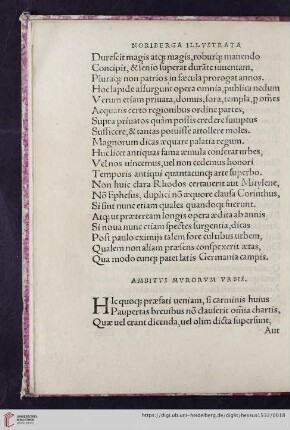 NORIBERGA ILLVSTRATA
Durescit magis atq; magis, roburq; manendo
Concipit, & senio superat durāte iuuentam,
Pluraq; non patrios in sæcula prorogat annos.
Hoc lapide assurgunt opera omnia, publica nedum
Verum etiam priuata, domus, fora, templa, p omnes
Aequatis certo regionibus ordine partes,
Supra priuatos quàm possis credere sumptus
Sufficere, & tantas potuisse attollere moles.
Magnorum dicas æquare palatia regum.
Huc licet antiquas fama æmula conferat urbes,
Vel nos uincemus, uel non cedemus honori
Temporis antiqui quantacunq; arte superbo.
Non huic clara Rhodos certauerit aut Mitylene,
Nō Ephesus, duplici nō æquore clausa Corinthus,
Si sint nunc etiam quales quandoq; fuerunt.
Atq; ut præteream longis opera ædita ab annis
Si noua nunc etiam spectes surgentia, dicas
Post paulo eximijs talem fore cultibus urbem,
Qualem non aliam præsens conspexerit ætas,
Qua modo cunq; patet latis Germania campis.
AMBITVS MVRORVM VRBIS.
HIc quoq; præfati ueniam, si carminis huius
Paupertas breuibus nō clauserit oīa chartis,
Quæ uel erant dicenda, uel olim dicta supersunt,
Aut
UNIVERSITÄTS-
BIBLIOTHEK
HEIDELBERG
https://digi.ub.uni-heidelberg.de/diglit/hessus1532/0018